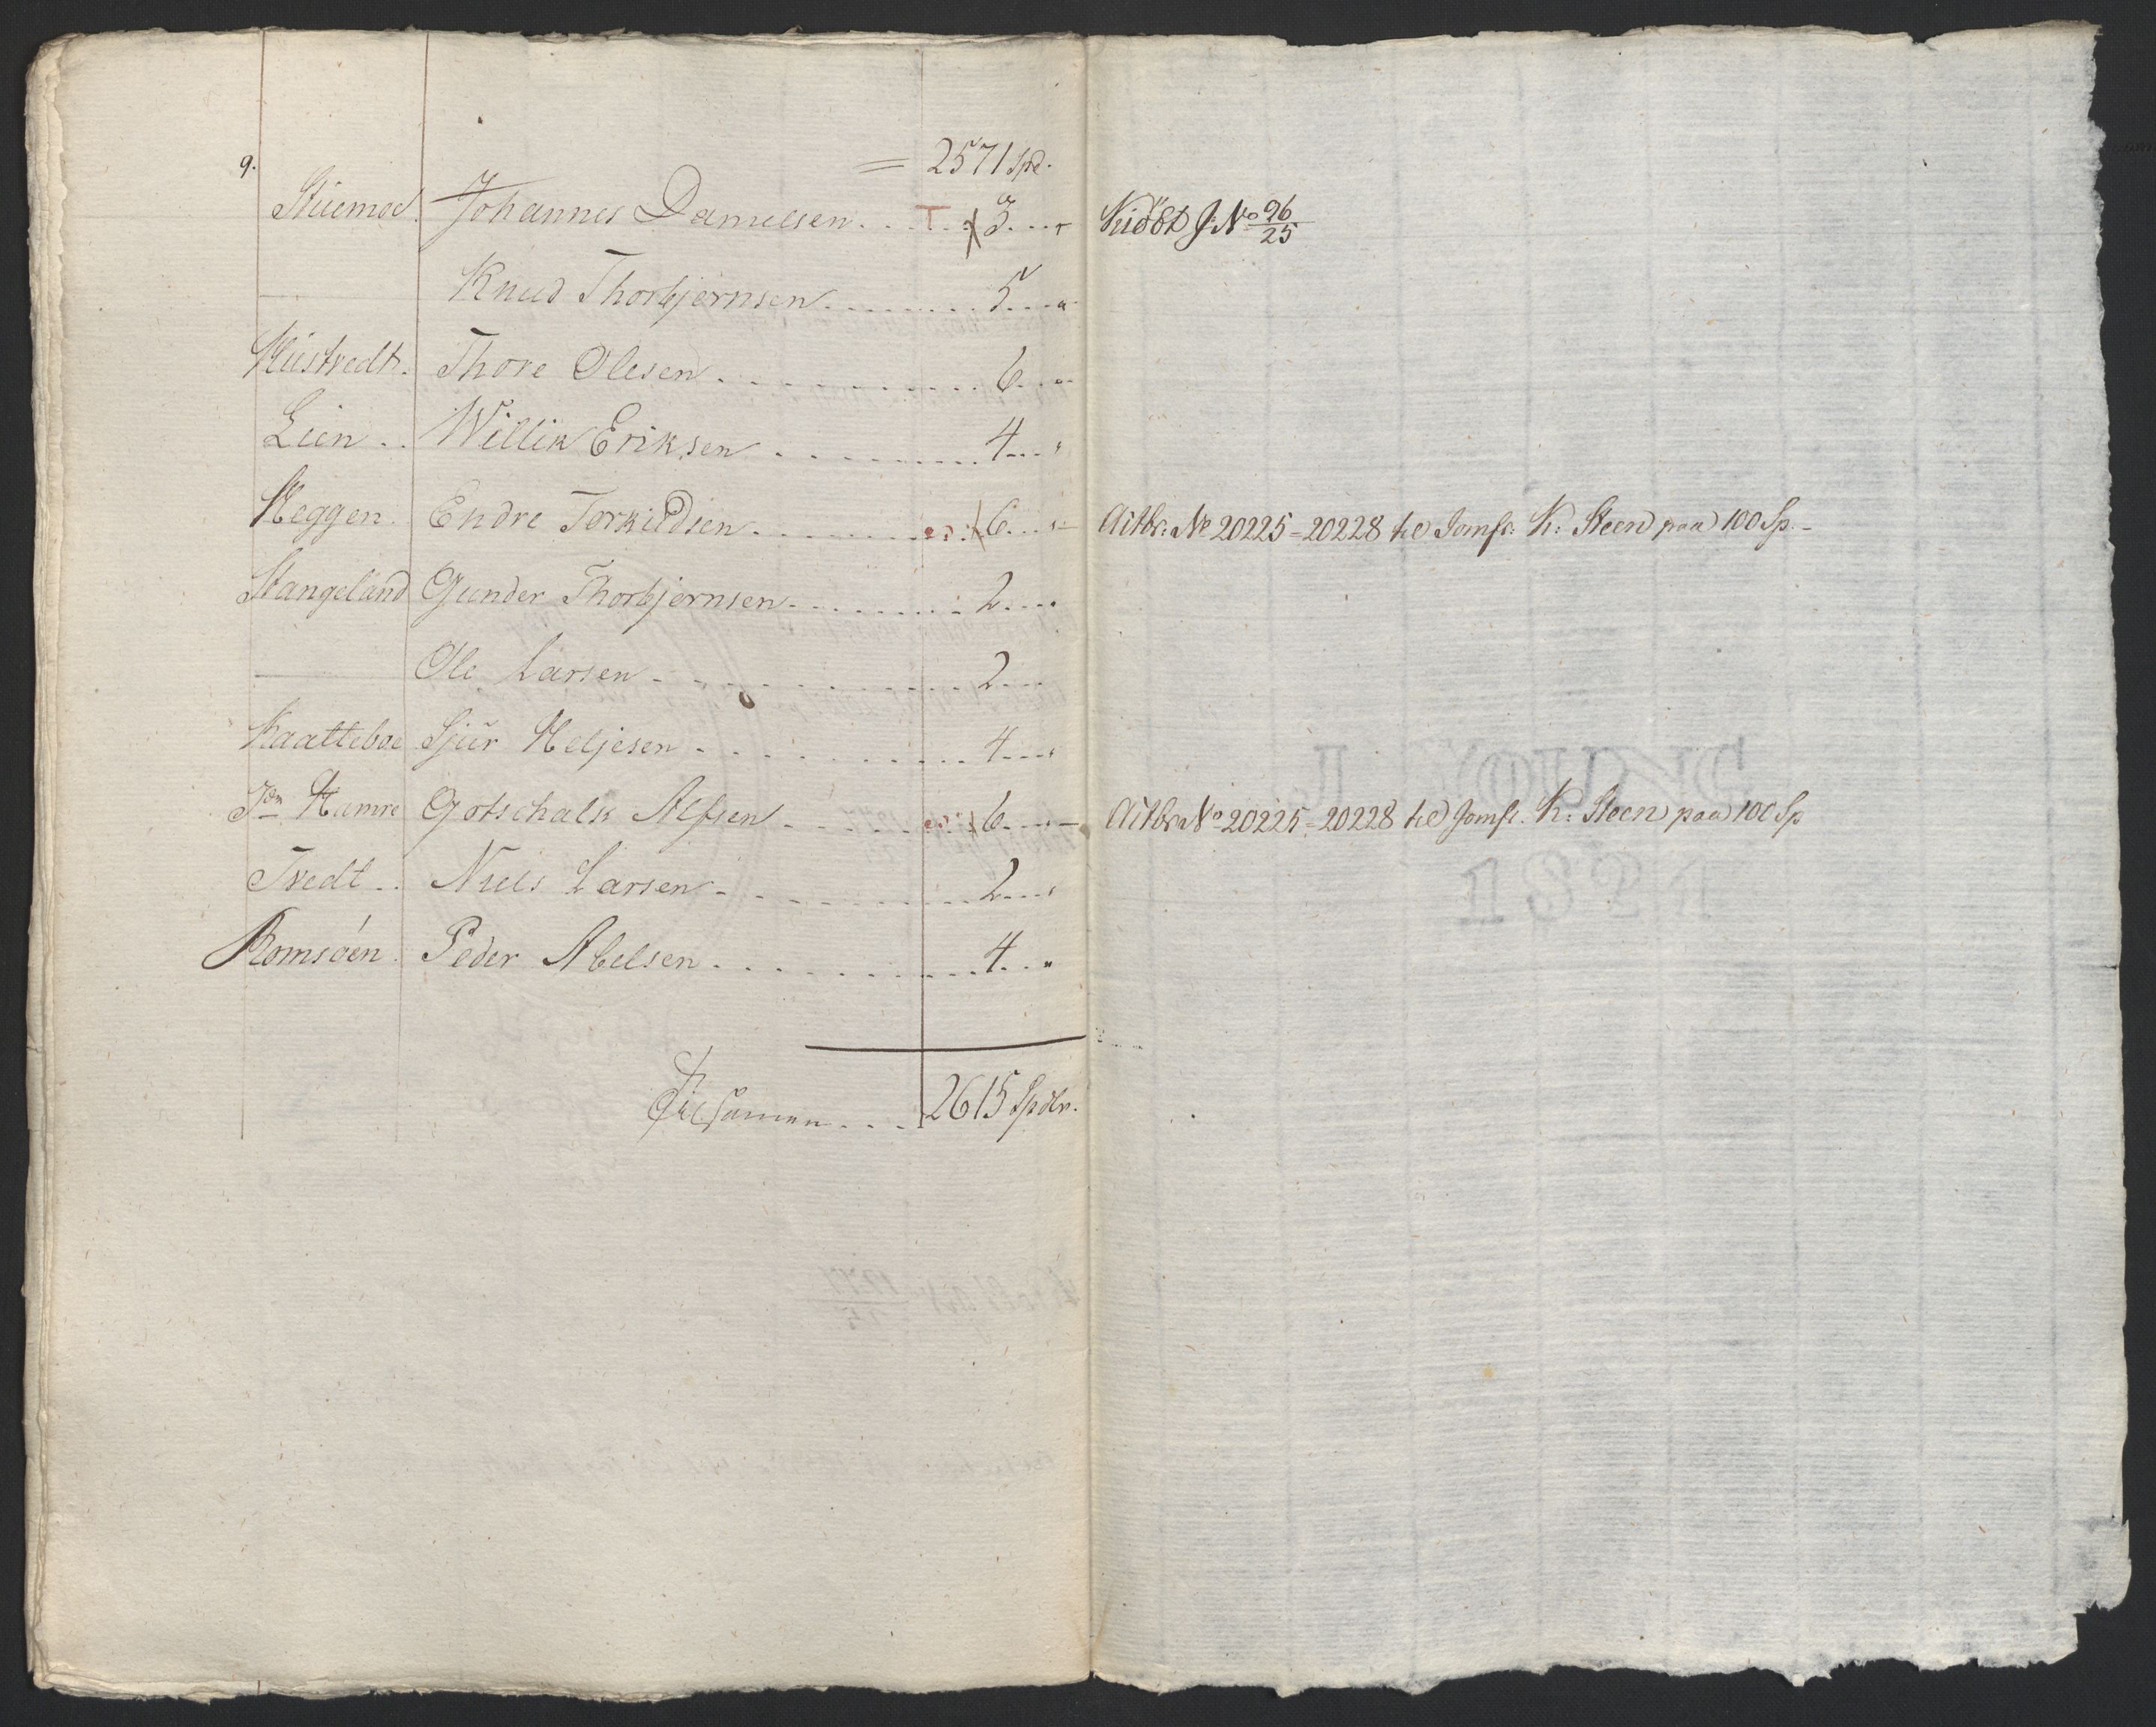 9.
= 2571 Spd.
Stuemoe. Johannes Danielsen . . . T . . 3 . . . Kiöbt J: No 96/25
— Knud Thorbjørnsen . . . 5 . . . "
Kustvedt. Thore Olesen . . . 6 . . . "
Lien . . Willik Eriksen . . . 4 . . . "
Heggen. Endre Torkildsen . . . 6 . . . " Aitbr: No 20225 = 20228 til Jomfr: K: Steen paa 100 Sp. -
Stangeland Gunder Thorbjørnsen . . . 2 . . . "
— Ole Larsen . . . 2 . . .
Kaatteboe Sjur Heljesen . . . 4 . . . "
Hamre Gotschalk Alfsen . . . 6 . . . " Aitbr No 20225 = 20228 til Jomfr. K: Steen paa 100 Sp
Tvedt . . Niels Larsen . . . 2 . . . "
Romsøen. Peder Abelsen . . . 4 . . . "
Tilsamen . . . 2615 Spdlr.